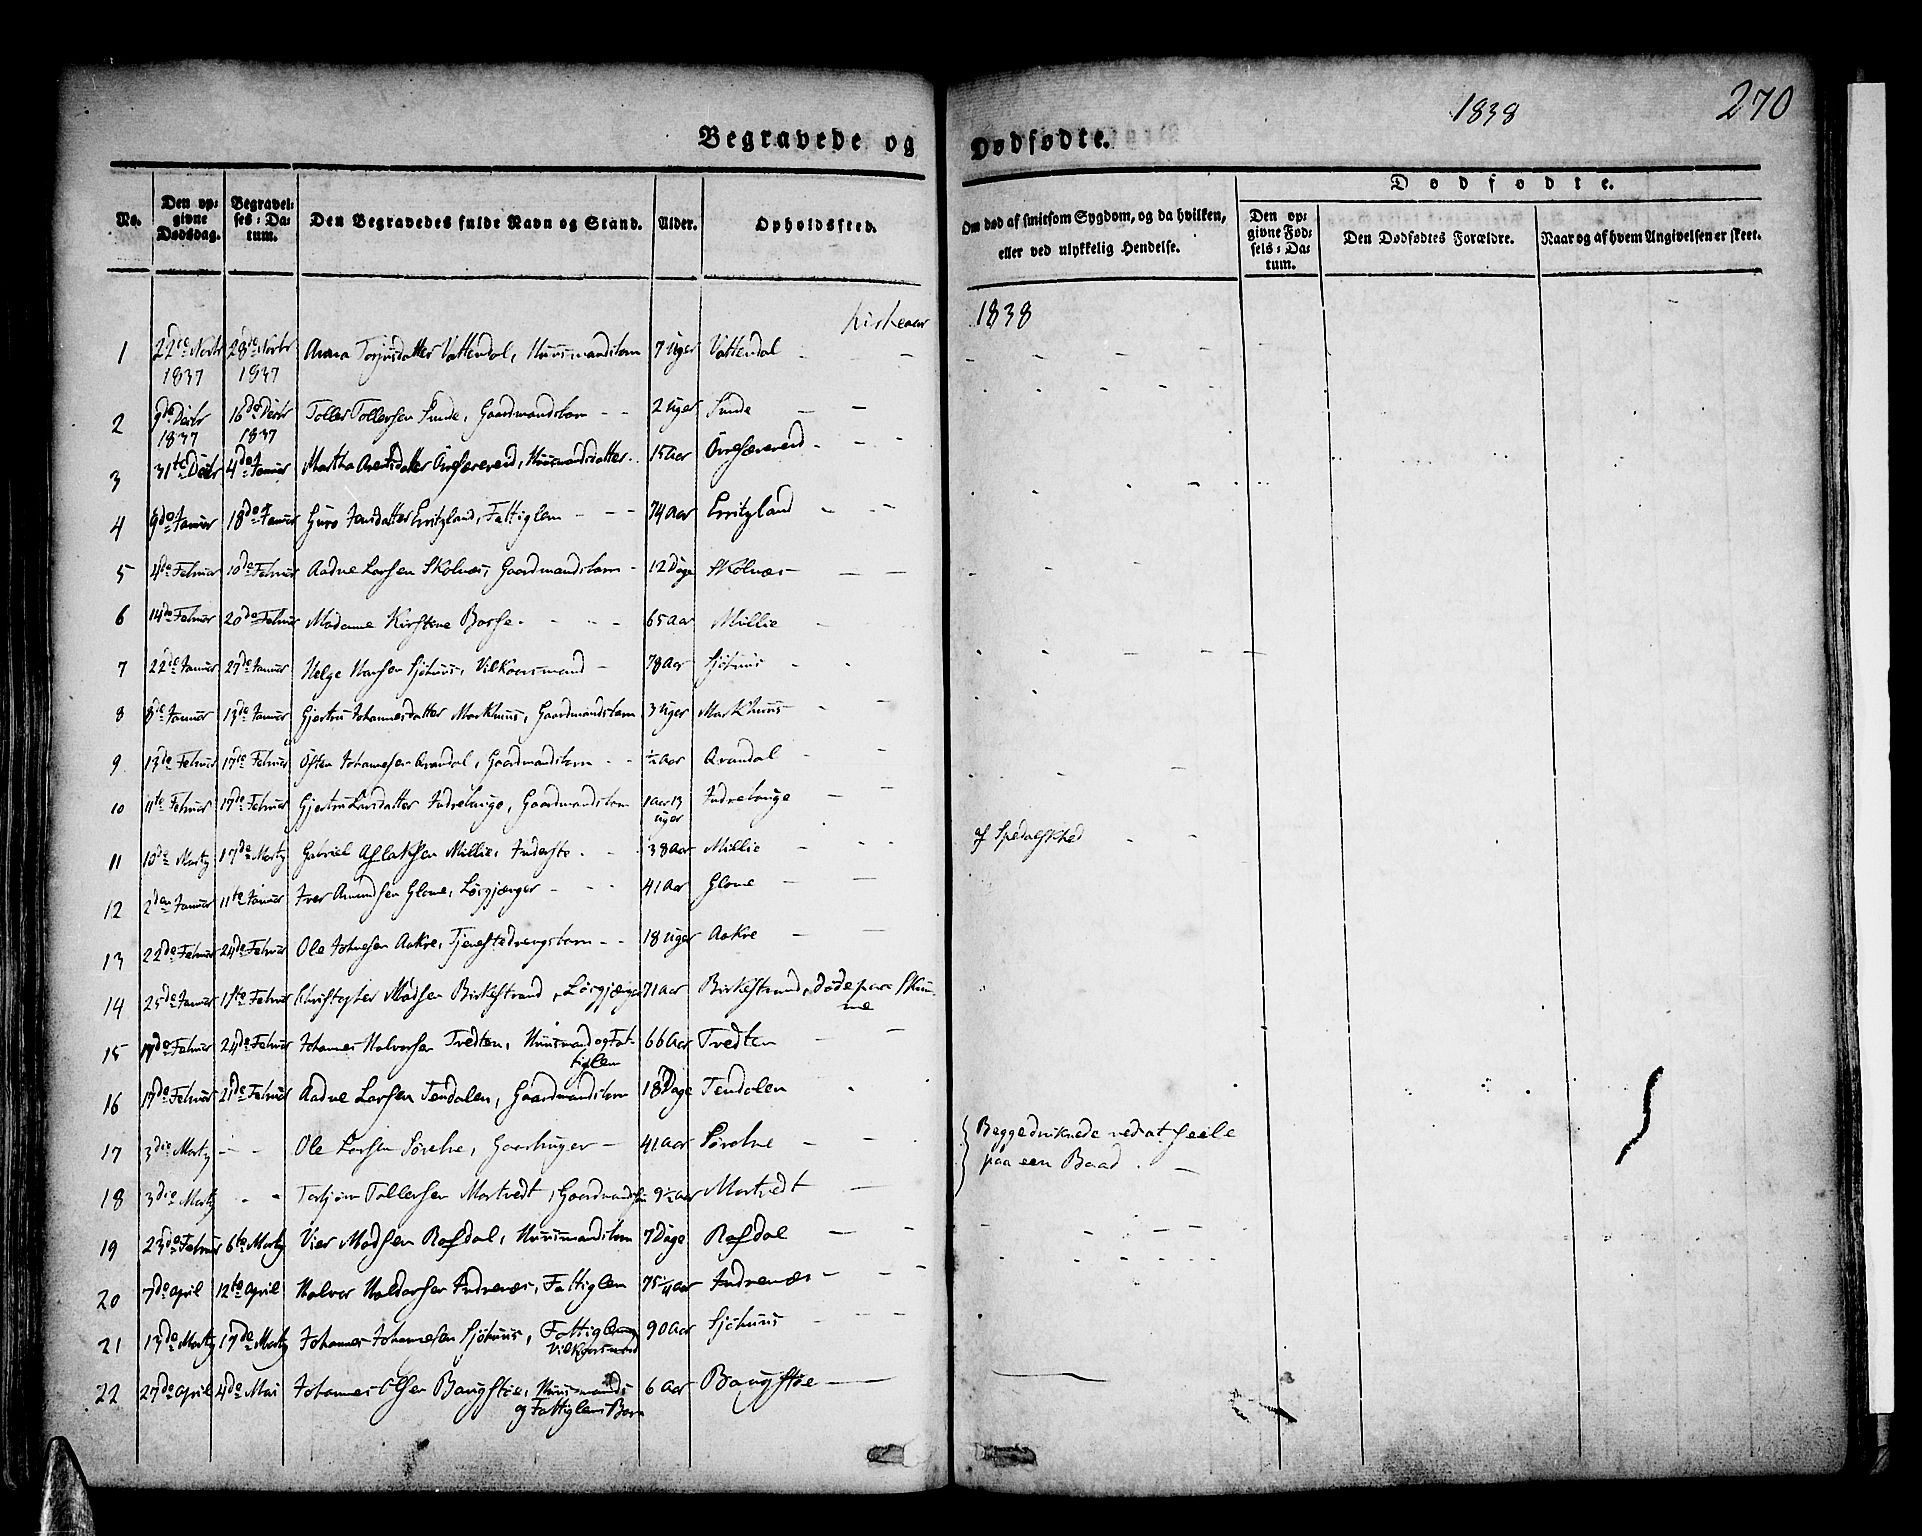 1838
270
Begravede og Dødfødte.
No.
Den op-
givne
Dødsdag.
Begravel-
ses-Da-
tum.
Den Begravedes fulde Navn og Stand.
Alder.
Opholdssted.
Om død af smitsom Sygdom, og da hvilken,
eller ved ulykkelig Hendelse.
Dødfødte.
Den op-
givne Fød-
sels-Da-
tum.
Den Dødfødtes Forældre.
Naar og af hvem Angivelsen er skeet.
Kirkeaar 1838
1 22de Novbr 28de Novbr Anna Torjusdatter Vattendal, Huusmandsbarn 7 Uger Vattendal
1837 1837
2 9de Decbr 16de Decbr Toller Tollersen Sunde, Gaardmandsbarn 2 Uger Sunde
1837 1837
3 31te Decbr 4de Januar Martha Huusmandsdatter 15 Aar
4 9de Januar 18de Januar Guro Jensdatter Fattiglem 74 Aar
5 4de Februar 10de Februar Aadne Larsen Skolnæs, Gaardmandsbarn 12 Dage Skolnæs
6 14de Februar 20de Februar Madame Kirstene Borse 65 Aar Millie
7 22de Januar 27de Januar Helge Hansen Sjöhuus, Vilkaarsmand 78 Aar Sjöhuus
8 8de Januar 13de Januar Gjertru Johannesdatter Markhuus, Gaardmandsbarn 3 Uger Markhuus
9 13de Februar 17de Februar Östen Johannesen Gaardmandsbarn ½ Aar
10 11te Februar 17de Februar Gjertru Larsdatter Indrelauge, Gaardmandsbarn 1 Aar 13 Indrelauge
Uger
11 10de Martz 17de Martz Gabriel Aslaksen Millie, Inderste 38 Aar Millie af Spedalskhed
12 2den Januar 11te Januar Iver Amundsen Glome, Løsgjænger 41 Aar Glome
13 22de Februar 24de Februar Ole Johnsen Aakre, Tjenestedrengsbarn 18 Uger Aakre
14 25de Januar 1ste Februar Christopher Madsen Birkestrand, Løsgjænger 71 Aar Birkestrand, døde paa Skun-
ne
15 17de Februar 24de Februar Johannes Halvorsen Tvedten, Huusmand og Fat- 66 Aar Tvedten
tiglem
16 17de Februar 21de Februar Aadne Larsen Tendalen, Gaardmandsbarn 18 Dage Tendalen
17 3die Martz Ole Larsen Sørelve, Gaardbruger 41 Aar Sørelve Begge druknede ved at seile
paa een Baad.
18 3die Martz Torbjørn Tollersen Mortvedt, 9½ Aar Mortvedt
19 23de Februar 6te Martz Vier Madsen Røfdal, Huusmandsbarn 7 Dage Røfdal
20 7de April 12te April Halvor Haldorsen Indrenæs, Fattiglem 75¼ Aar Indrenæs
21 13de Martz 17de Martz Johannes Johannesen Sjöhuus, Fattiglem og 90 Aar Sjöhuus
Vilkaarsmand
22 27de April 4de Mai Johannes Olsen Baugstøe, Huusmands 6 Aar Baugstøe
og Fattiglems Barn